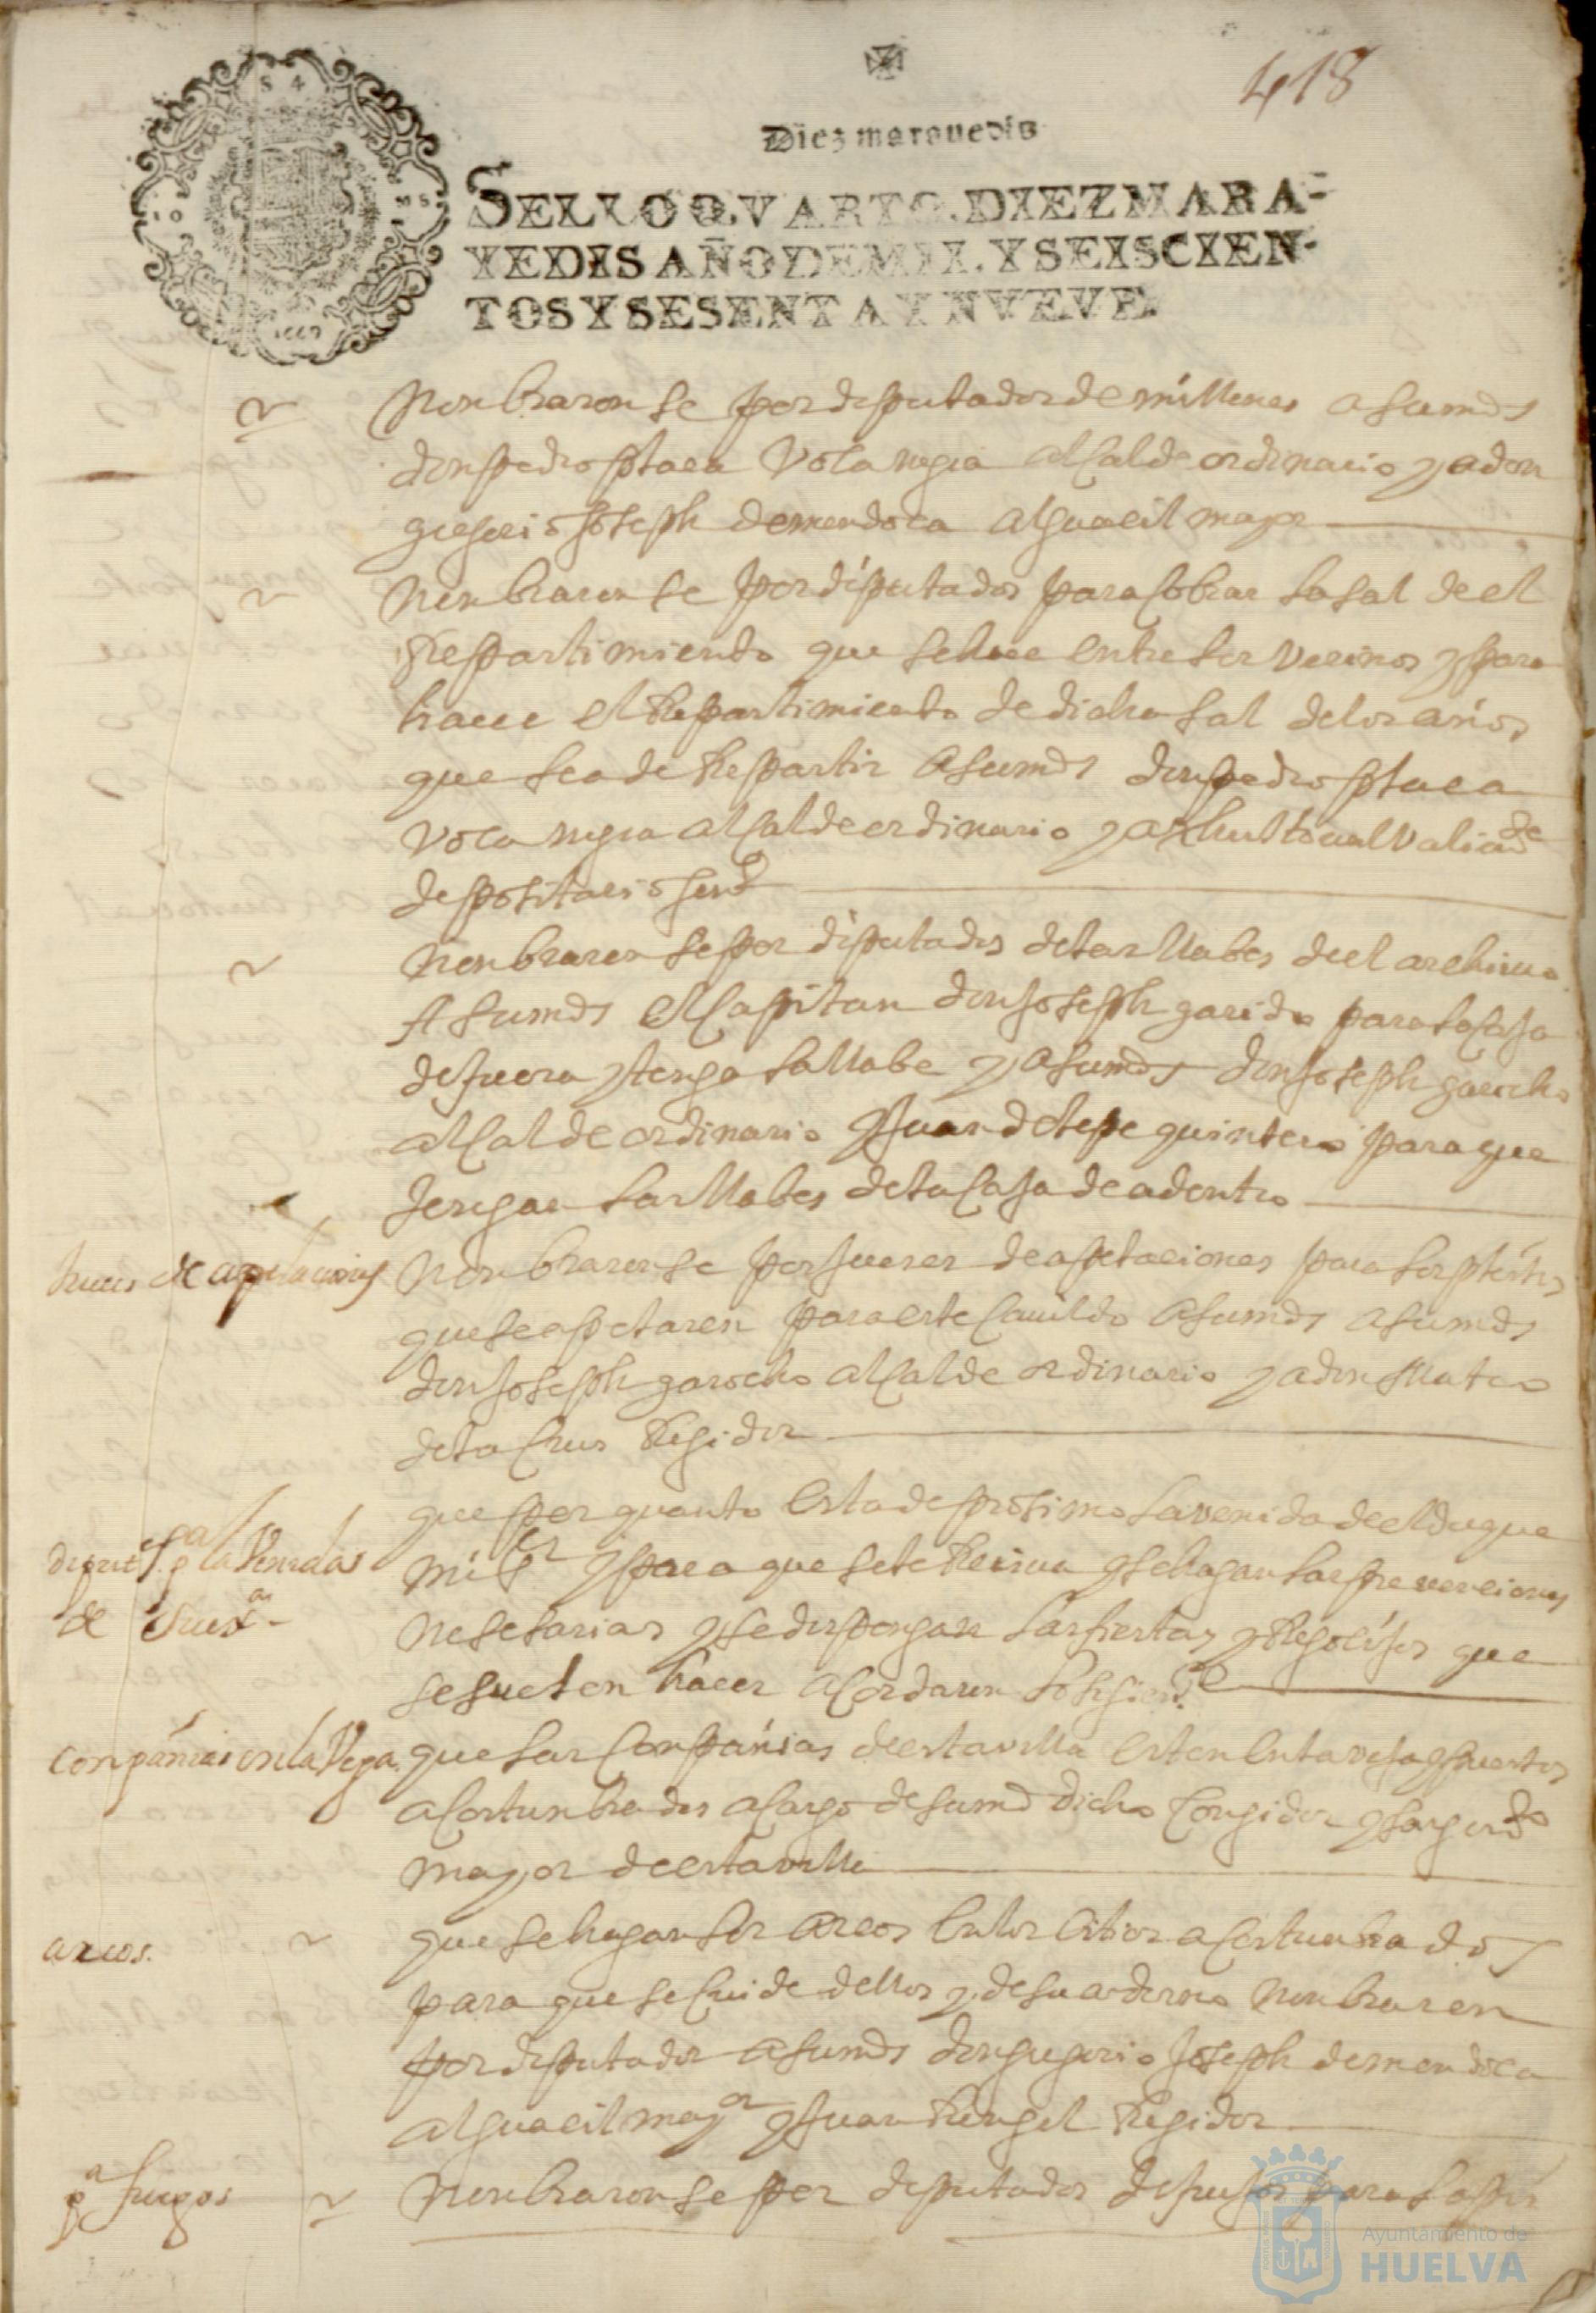 418
Diez maravedis
SELLO QVARTO, DIEZ MARA-
VEDIS AÑO DE MIL Y SEISCIEN-
TOS Y SESENTA Y NVEVE.
Nonbraronse por deputados de millones a sumds
don pedro ptaca Volanegra alcalde ordinario y a don
gregorio Joseph de mendoca alguacil mayor
Nonbraronse por diputados para cobrar la sal de el
Repartimiento que se hace entre los vecinos y para
hacer el Repartimiento de dicha sal de los años
que se a de Repartir a sumds don pedro ptaca
Volanegra alcalde ordinario y a
depositario genl
Nonbraronse por diputados de las llabes de el archivo
A sumds el Capitan don Joseph garido para la caja
de fuera y tenga la llabe y a sumds don Joseph garocho
alcalde ordinario y Juan de lepe quintero para que
tengan las llabes de la caja de adentro
Jueces de apelaciones
Nonbraronse por jueces de apelaciones para los pleitos
que se apelaren para este cauildo a sumds a sumds
don Joseph garocho alcalde ordinario y a don Mateo
de la Crus Regidor
que por quanto esta de prosimo la venida de el duque
diputs pa la Venida
de Su exa
mi Sr y para que se le Reciua y se hagan las preuenciones
nesesarias y se dispongan las fiestas y Regosijos que
se suelen hacer acordaron lo siguiente
conpánias en la Vega
que las Conpánias de esta villa esten en la vega y puestos
acostunbrados a cargo de sumd dicho Corregidor y sargento
mayor de esta villa
arcos.
que se hagan los arcos en los citios acostunbrados
para que se cuide dellos y de su aderono nonbraron
por diputados a sumds don gregorio Joseph de mendoca
alguacil mayor y Juan Rengel Regidor
pa fuegos
Nonbraronse por deputados de fuegos para la
Ayuntamiento de
HUELVA